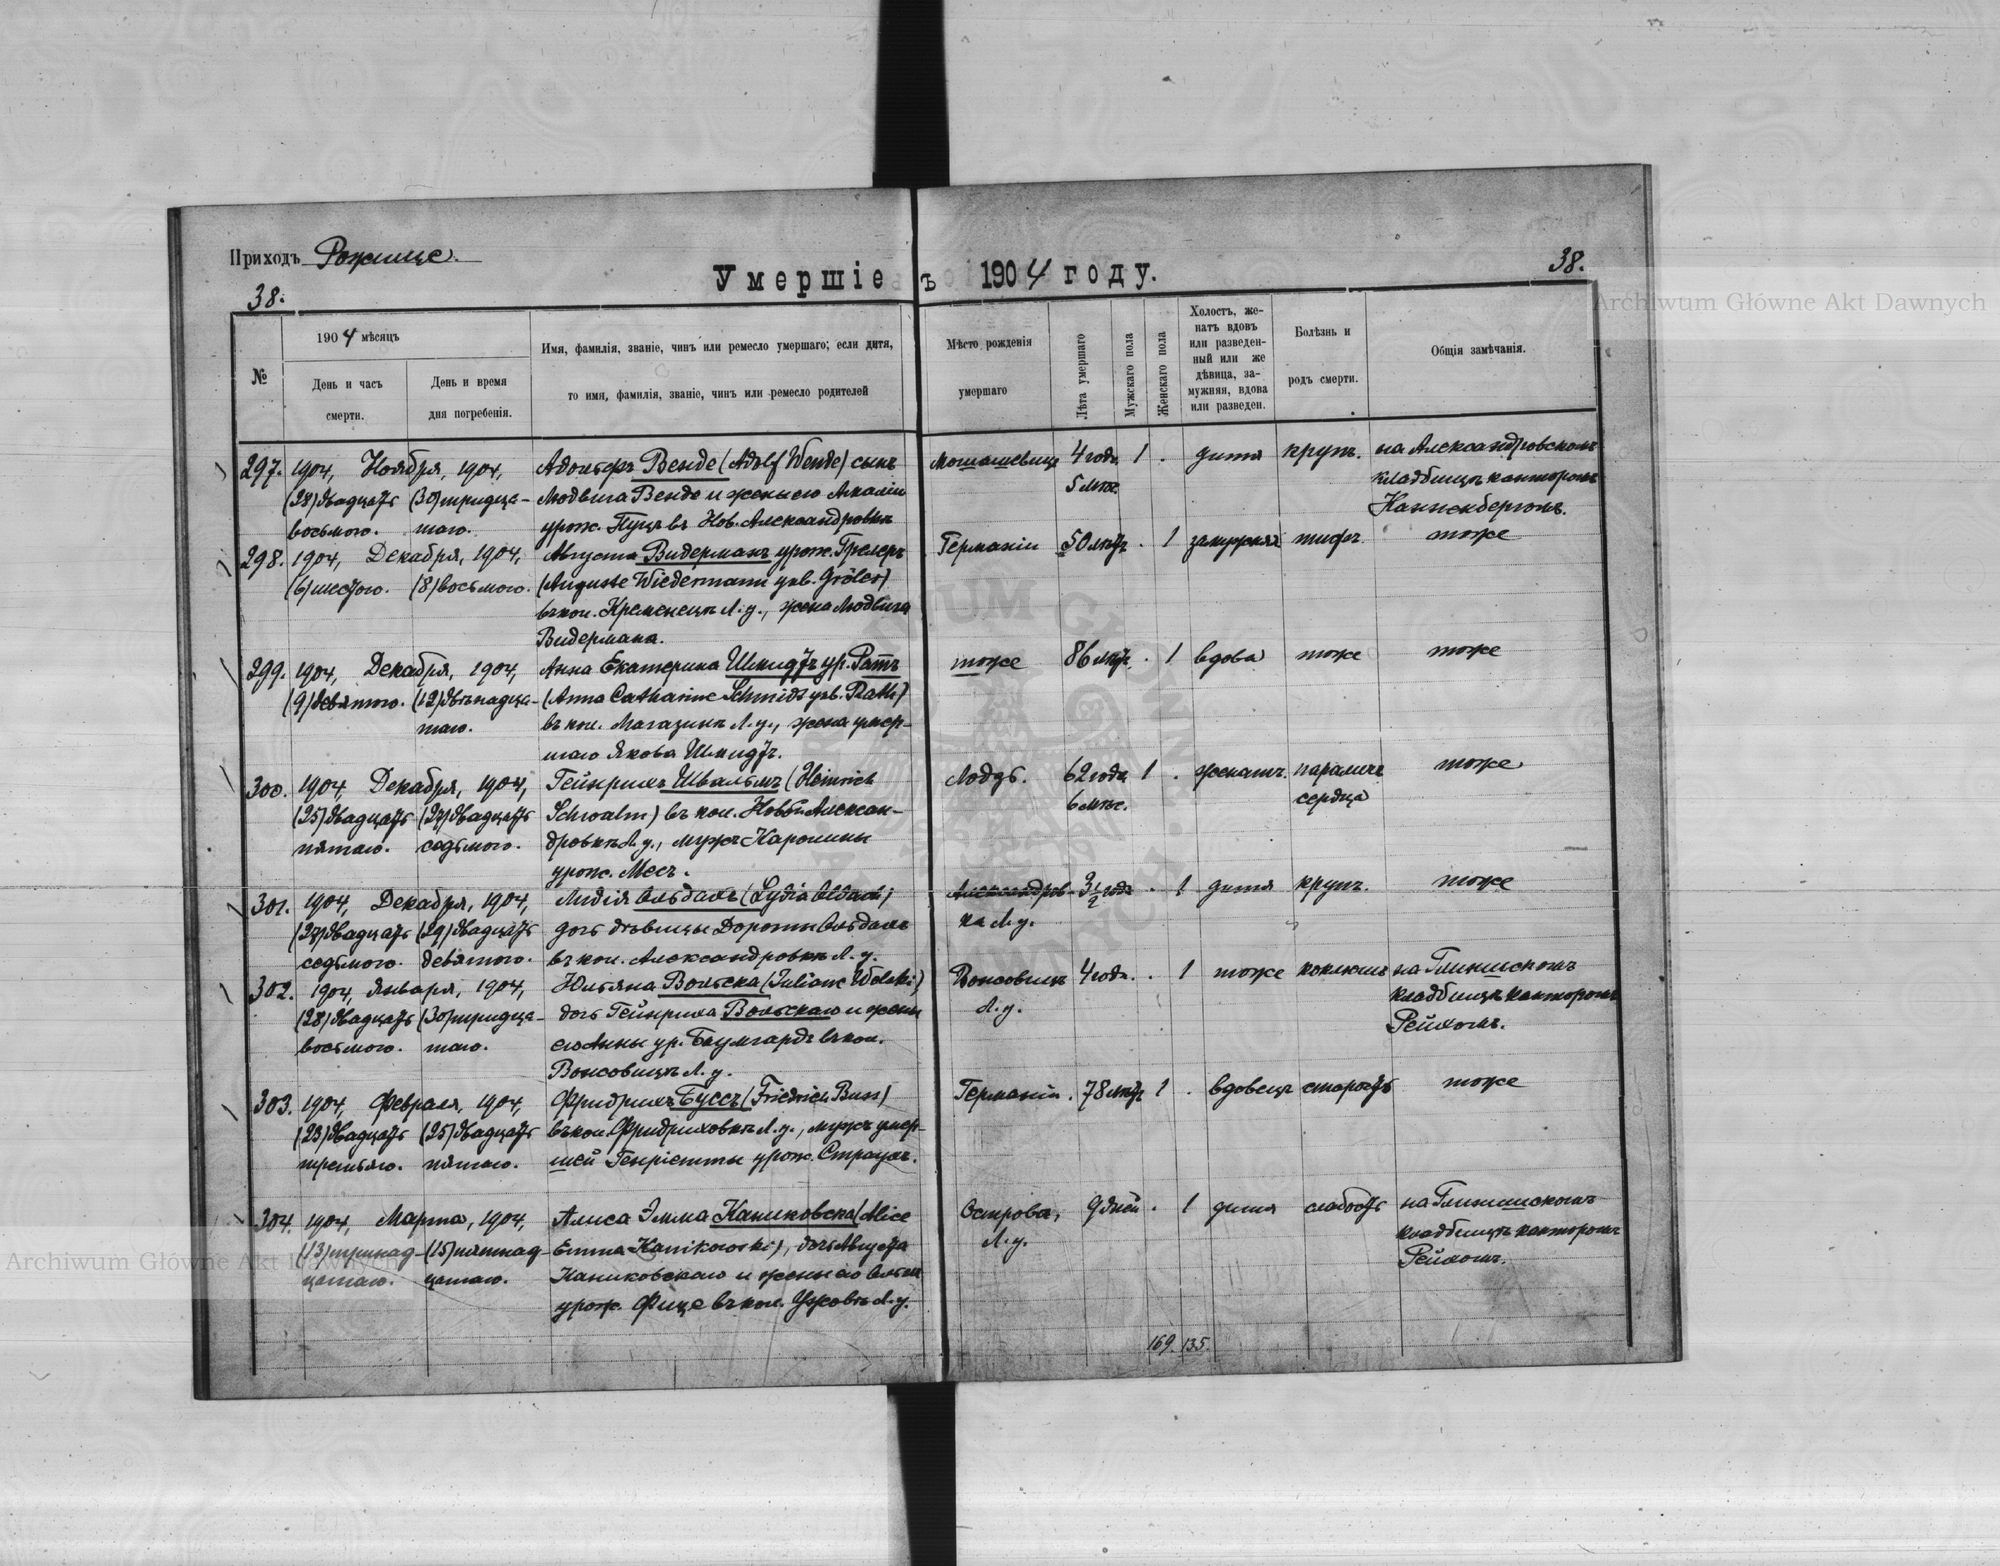 Приходъ Рожище.
Умершіе въ 1904 году.
38.
38.
№
1904 мѣсяцъ
День и часъ смерти.
День и время дня погребенія.
Имя, фамилія, званіе, чинъ или ремесло умершаго; если дитя,
то имя, фамилія, званіе, чинъ или ремесло родителей
Мѣсто рожденія
умершаго
Лѣта умершаго
Мужскаго пола
Женскаго пола
Холостъ, же-
натъ вдовъ
или разведен-
ный или же
дѣвица, за-
мужняя, вдова
или разведен.
Болѣзнь и
родъ смерти.
Общія замѣчанія.
297. 1904, Ноября, 1904, Адольфъ Венде (Adolf Wende) сынъ 4 года 1 . дитя крупъ. на Александровскомъ
(28) двадцать (30) тридца- Людвига Венде и жены его Амаліи 5 мѣс. кладбищѣ канторомъ
восьмого. таго. урож. Пуцъ въ Нов. Александровкѣ Канненбергомъ.
298. 1904, Декабря, 1904, Августа Видерманъ урож. Грелеръ Германіи 50 лѣтъ . 1 замужняя тифъ тоже
(6) шестого. (8) восьмого. (Auguste Wiedermann geb. Gröler)
въ кол. Кременецъ Л. у., жена Людвига
Видермана.
299. 1904, Декабря, 1904, Анна Екатерина Шмидтъ ур. Ратъ тоже 86 лѣтъ . 1 вдова тоже тоже
(9) девятого. (12) двѣнадца- (Anna Catharine Schmidt geb. Rath)
таго. въ кол. Магазинѣ Л. у., жена умер-
шаго Якова Шмидтъ.
300. 1904, Декабря, 1904, Гейнрихъ Швальмъ (Heinrich Лодзь. 62 года 1 . женатъ. параличъ тоже
(25) двадцать (27) двадцать Schwalm) въ кол. Новой Алексан- 6 мѣс. сердца
пятаго. седьмого. дровкѣ Л. у., мужъ Каролины
урож. Месъ.
301. 1904, Декабря, 1904, Лидія Ольдахъ (Lydia Oldach) Александров- 3½ года . 1 дитя крупъ. тоже
(27) двадцать (29) двадцать дочь дѣвицы Доротеи Ольдахъ ка Л. у.
седьмого. девятого. въ кол. Александровкѣ Л. у.
302. 1904, Января, 1904, Юльяна Вольска (Juliane Wolski) 4 года . 1 тоже коклюшъ на Глинискомъ
(28) двадцать (30) тридца- дочь Гейнриха Вольскаго и жены Л. у. кладбищѣ канторомъ
восьмого. таго. его Анны ур. Баумгардъ въ кол. Рейхомъ.
Вонсовицъ Л. у.
303. 1904, Февраля, 1904, Фридрихъ Буссъ (Friedrich Buss) Германіи. 78 лѣтъ 1 . вдовецъ старость тоже
(23) двадцать (25) двадцать въ кол. Фридриховкѣ Л. у., мужъ умер-
третьяго. пятаго. шей Генріетты урож. Страухъ.
304. 1904, Марта, 1904, Алиса Эмма Каниковска (Alice Острова, 9 дней . 1 дитя слабость на Глинискомъ
(13) тринад- (15) пятнад- Emma Kanikowski), дочь Августа Л. у. кладбищѣ канторомъ
цатаго. цатаго. Каниковскаго и жены его Ольги Рейхомъ.
урож. Фице въ кол. Ужовъ Л. у.
169. 135.
Archiwum Główne Akt Dawnych
Archiwum Główne Akt Dawnych